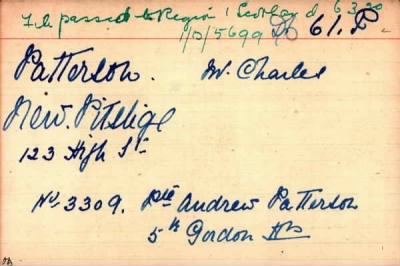 passed to Region 1 Scotland d. 6.3.20
1/D/5699 61.P
Patterson. Mr. Charles
New. Pitsligo
123 High St
No 3309. Pte Andrew Patterson
5th Gordon Hrs